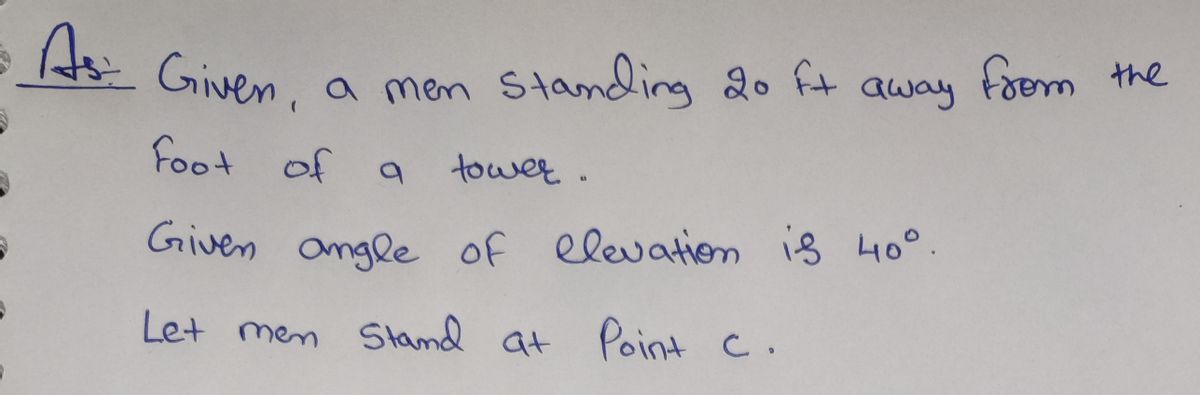 As:- Given, a men standing 20 ft away from the
foot of a tower.
Given angle of elevation is 40°.
Let men stand at Point C.